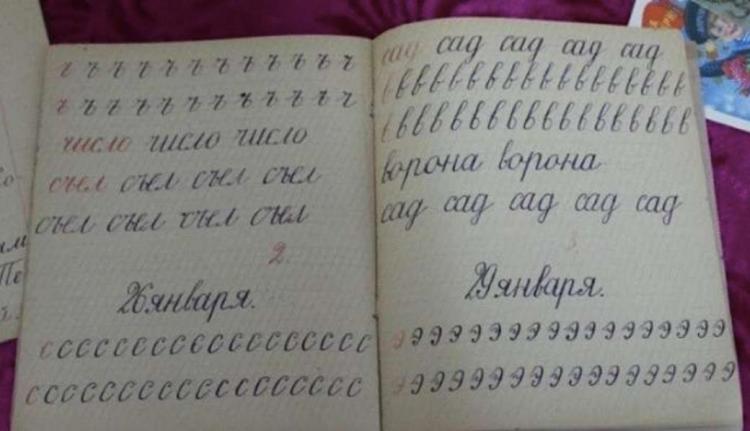 ъ ъ ъ ъ ъ ъ ъ ъ ъ ъ ъ ъ
ъ ъ ъ ъ ъ ъ ъ ъ ъ ъ ъ ъ
число число число
съел съел съел съел
съел съел съел съел
2
26 января.
с с с с с с с с с с с с с с с с с с
с с с с с с с с с с с с с с с с с с
сад сад сад сад сад
в в в в в в в в в в в в в в в в в
в в в в в в в в в в в в в в в в в
ворона ворона
сад сад сад сад сад
3
29 января.
э э э э э э э э э э э э э э э э э э
э э э э э э э э э э э э э э э э э э